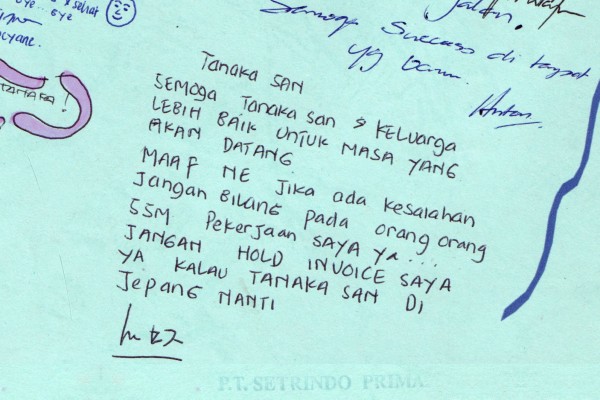 sehat
eye.. eye
TANAKA!
Semoga Success di tempat
yg baru.
Anton
Tanaka SAN
SEMOGA Tanaka san & KELUARGA
LEBIH BAIK UNTUK MASA YANG
AKAN DATANG
MAAF NE Jika ada kesalahan
Jangan BILANG pada orang orang
SSM Pekerjaan SAYA ya....
JANGAN HOLD INVOICE SAYA
YA KALAU TANAKA SAN DI
Jepang NANTI
P.T. SETRINDO PRIMA